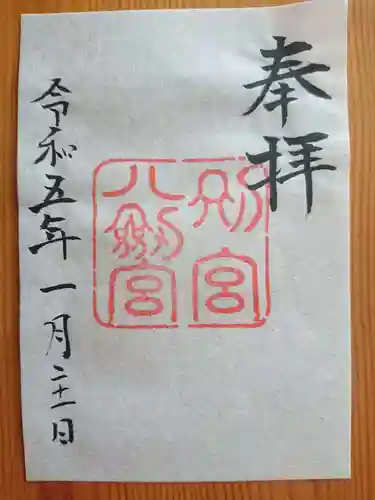 奉拝
別宮
八劍宮
令和五年一月二十一日